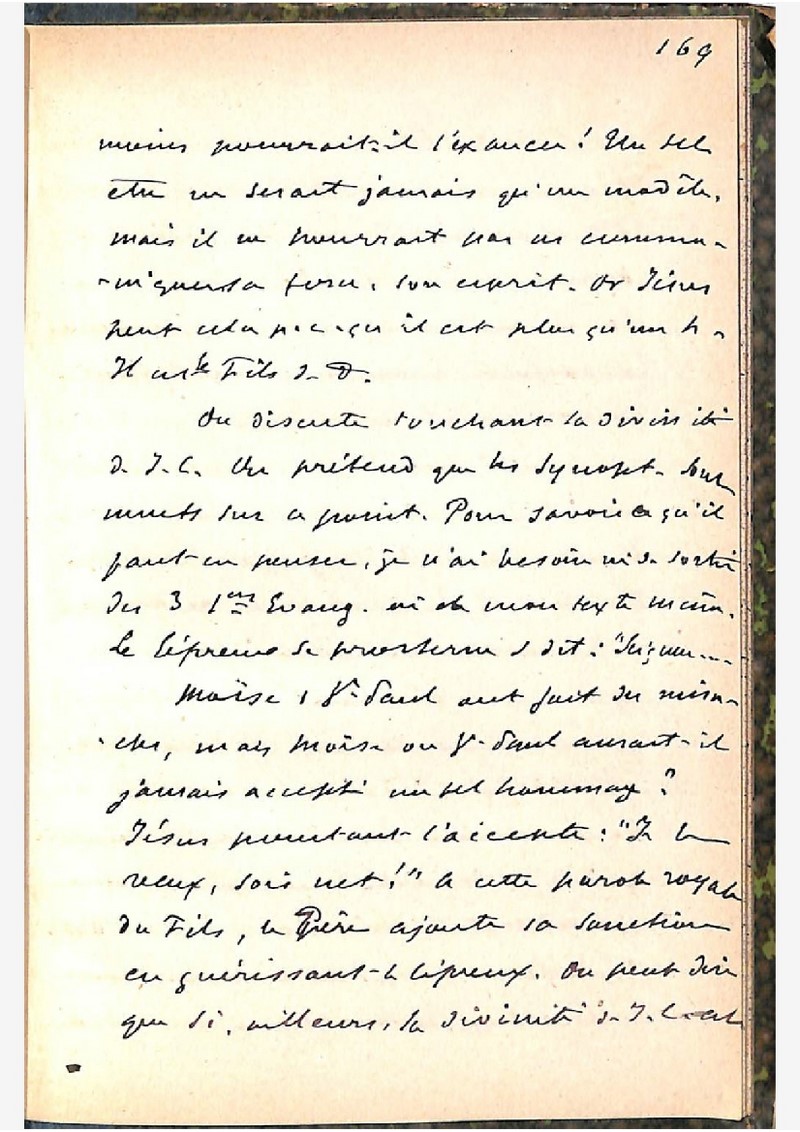 169
moins pourrait-il l'exaucer! Un tel
être ne serait jamais qu'un modèle,
mais il ne pourrait pas us commu-
-niquer sa force, son esprit. Or Jésus
peut cela p.c.qu'il est plus qu'un h.
Il est le Fils d. D.
On discute touchant la divinité
d. J.C. On prétend que les Synopt. sont
muets sur ce point. Pour savoir ce qu'il
faut en penser, je n'ai besoin ni de sortir
des 3 1ers Evang. ni de mon texte même.
Le lépreux se prosterne & dit: "Seigneur...
Moïse & St Paul ont fait des mira-
-cles, mais Moïse ou St Paul aurait-il
jamais accepté un tel hommage?
Jésus pourtant l'accepte: "Je le
veux, sois net!" A cette parole royale
du Fils, le Père ajoute sa sanction
en guérissant le lépreux. On peut dire
que si, ailleurs, la divinité d. J.C. est